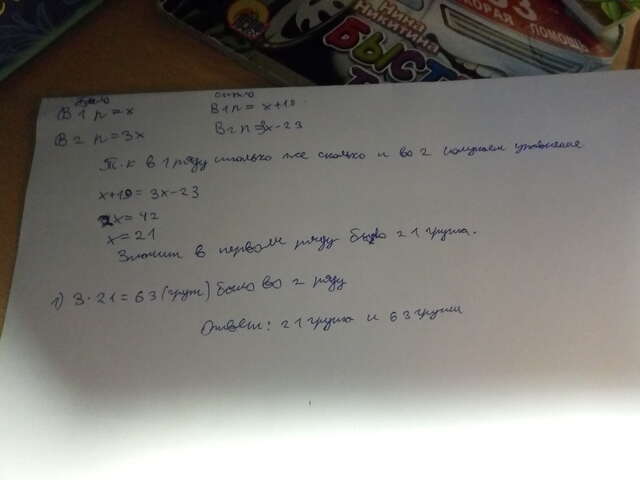 Нина
Никитина
БЫСТР
СКОРАЯ ПОМОЩЬ
было стало
В 1 р = x В 1 р = x+19
В 2 р = 3x В 2 р = 3x-23
Т.к в 1 ряду столько же сколько и во 2 получаем уравнение
x+19 = 3x-23
2x = 42
x = 21
Значит в первом ряду было 21 груша.
1) 3·21 = 63 (груш) было во 2 ряду
Ответ: 21 груша и 63 груши